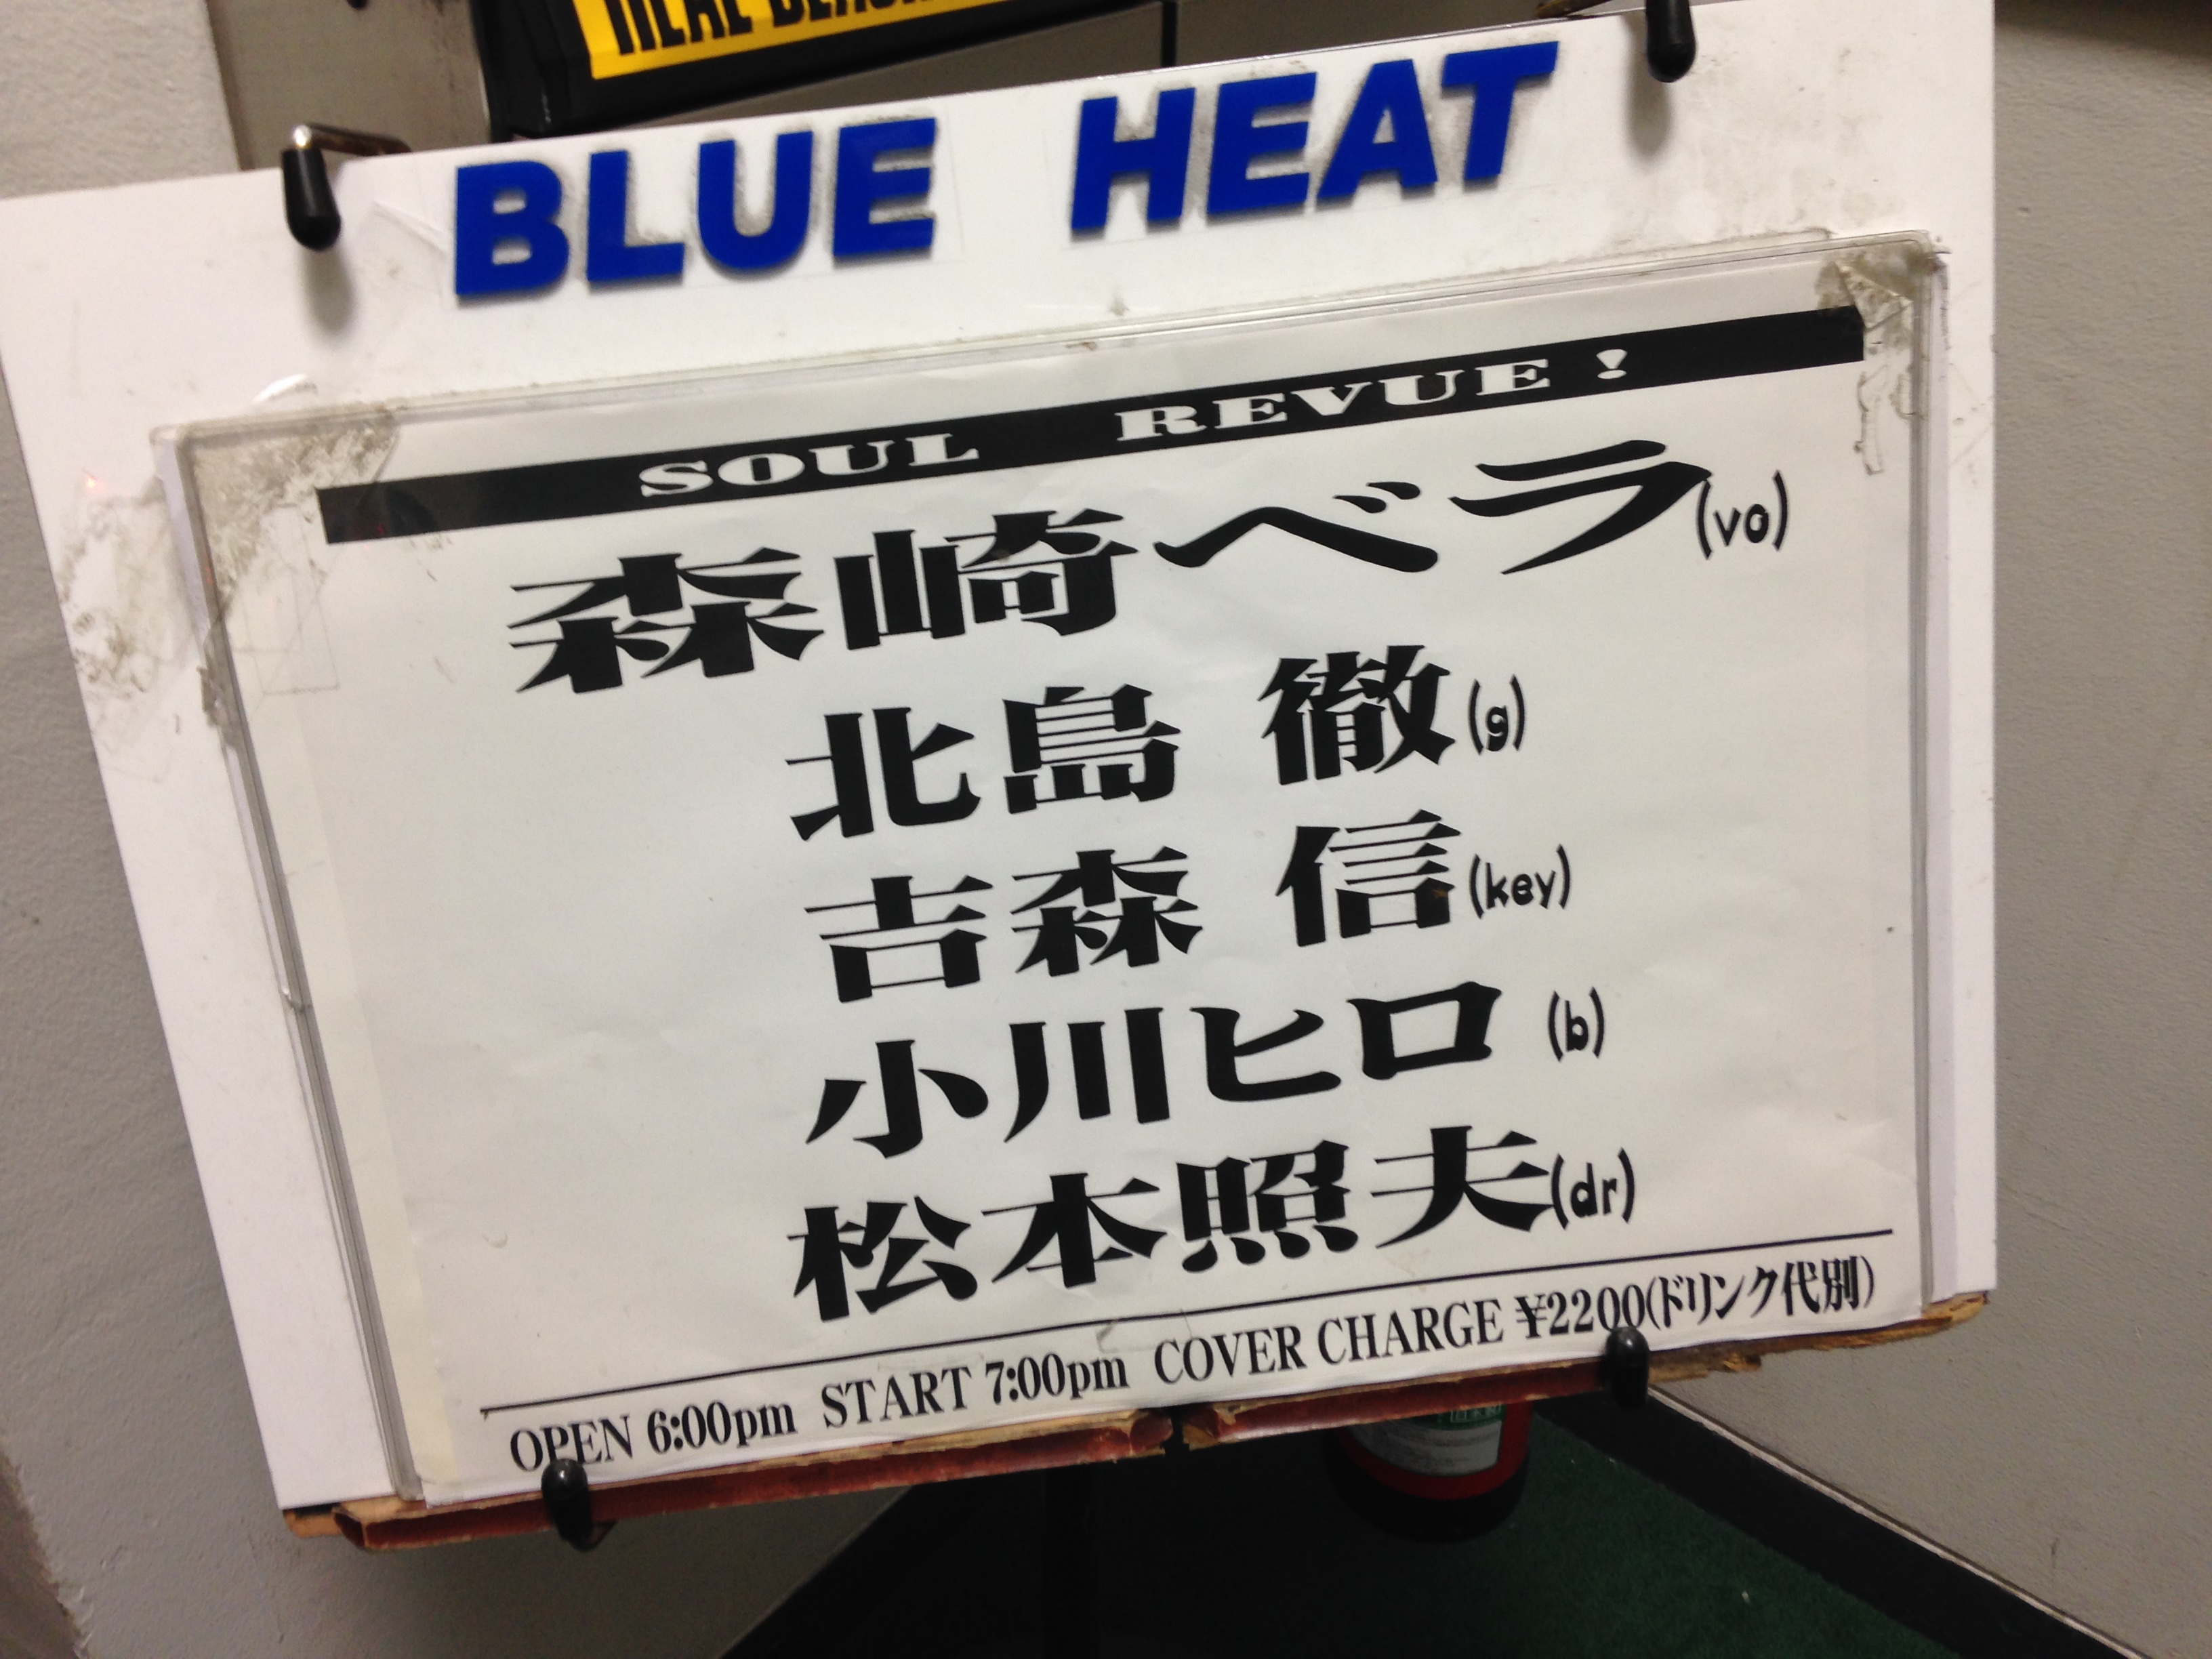 BLUE HEAT
SOUL REVUE!
森崎ベラ(vo)
北島 徹(g)
吉森 信(key)
小川ヒロ (b)
松本照夫(dr)
OPEN 6:00pm START 7:00pm COVER CHARGE ¥2200(ドリンク代別)